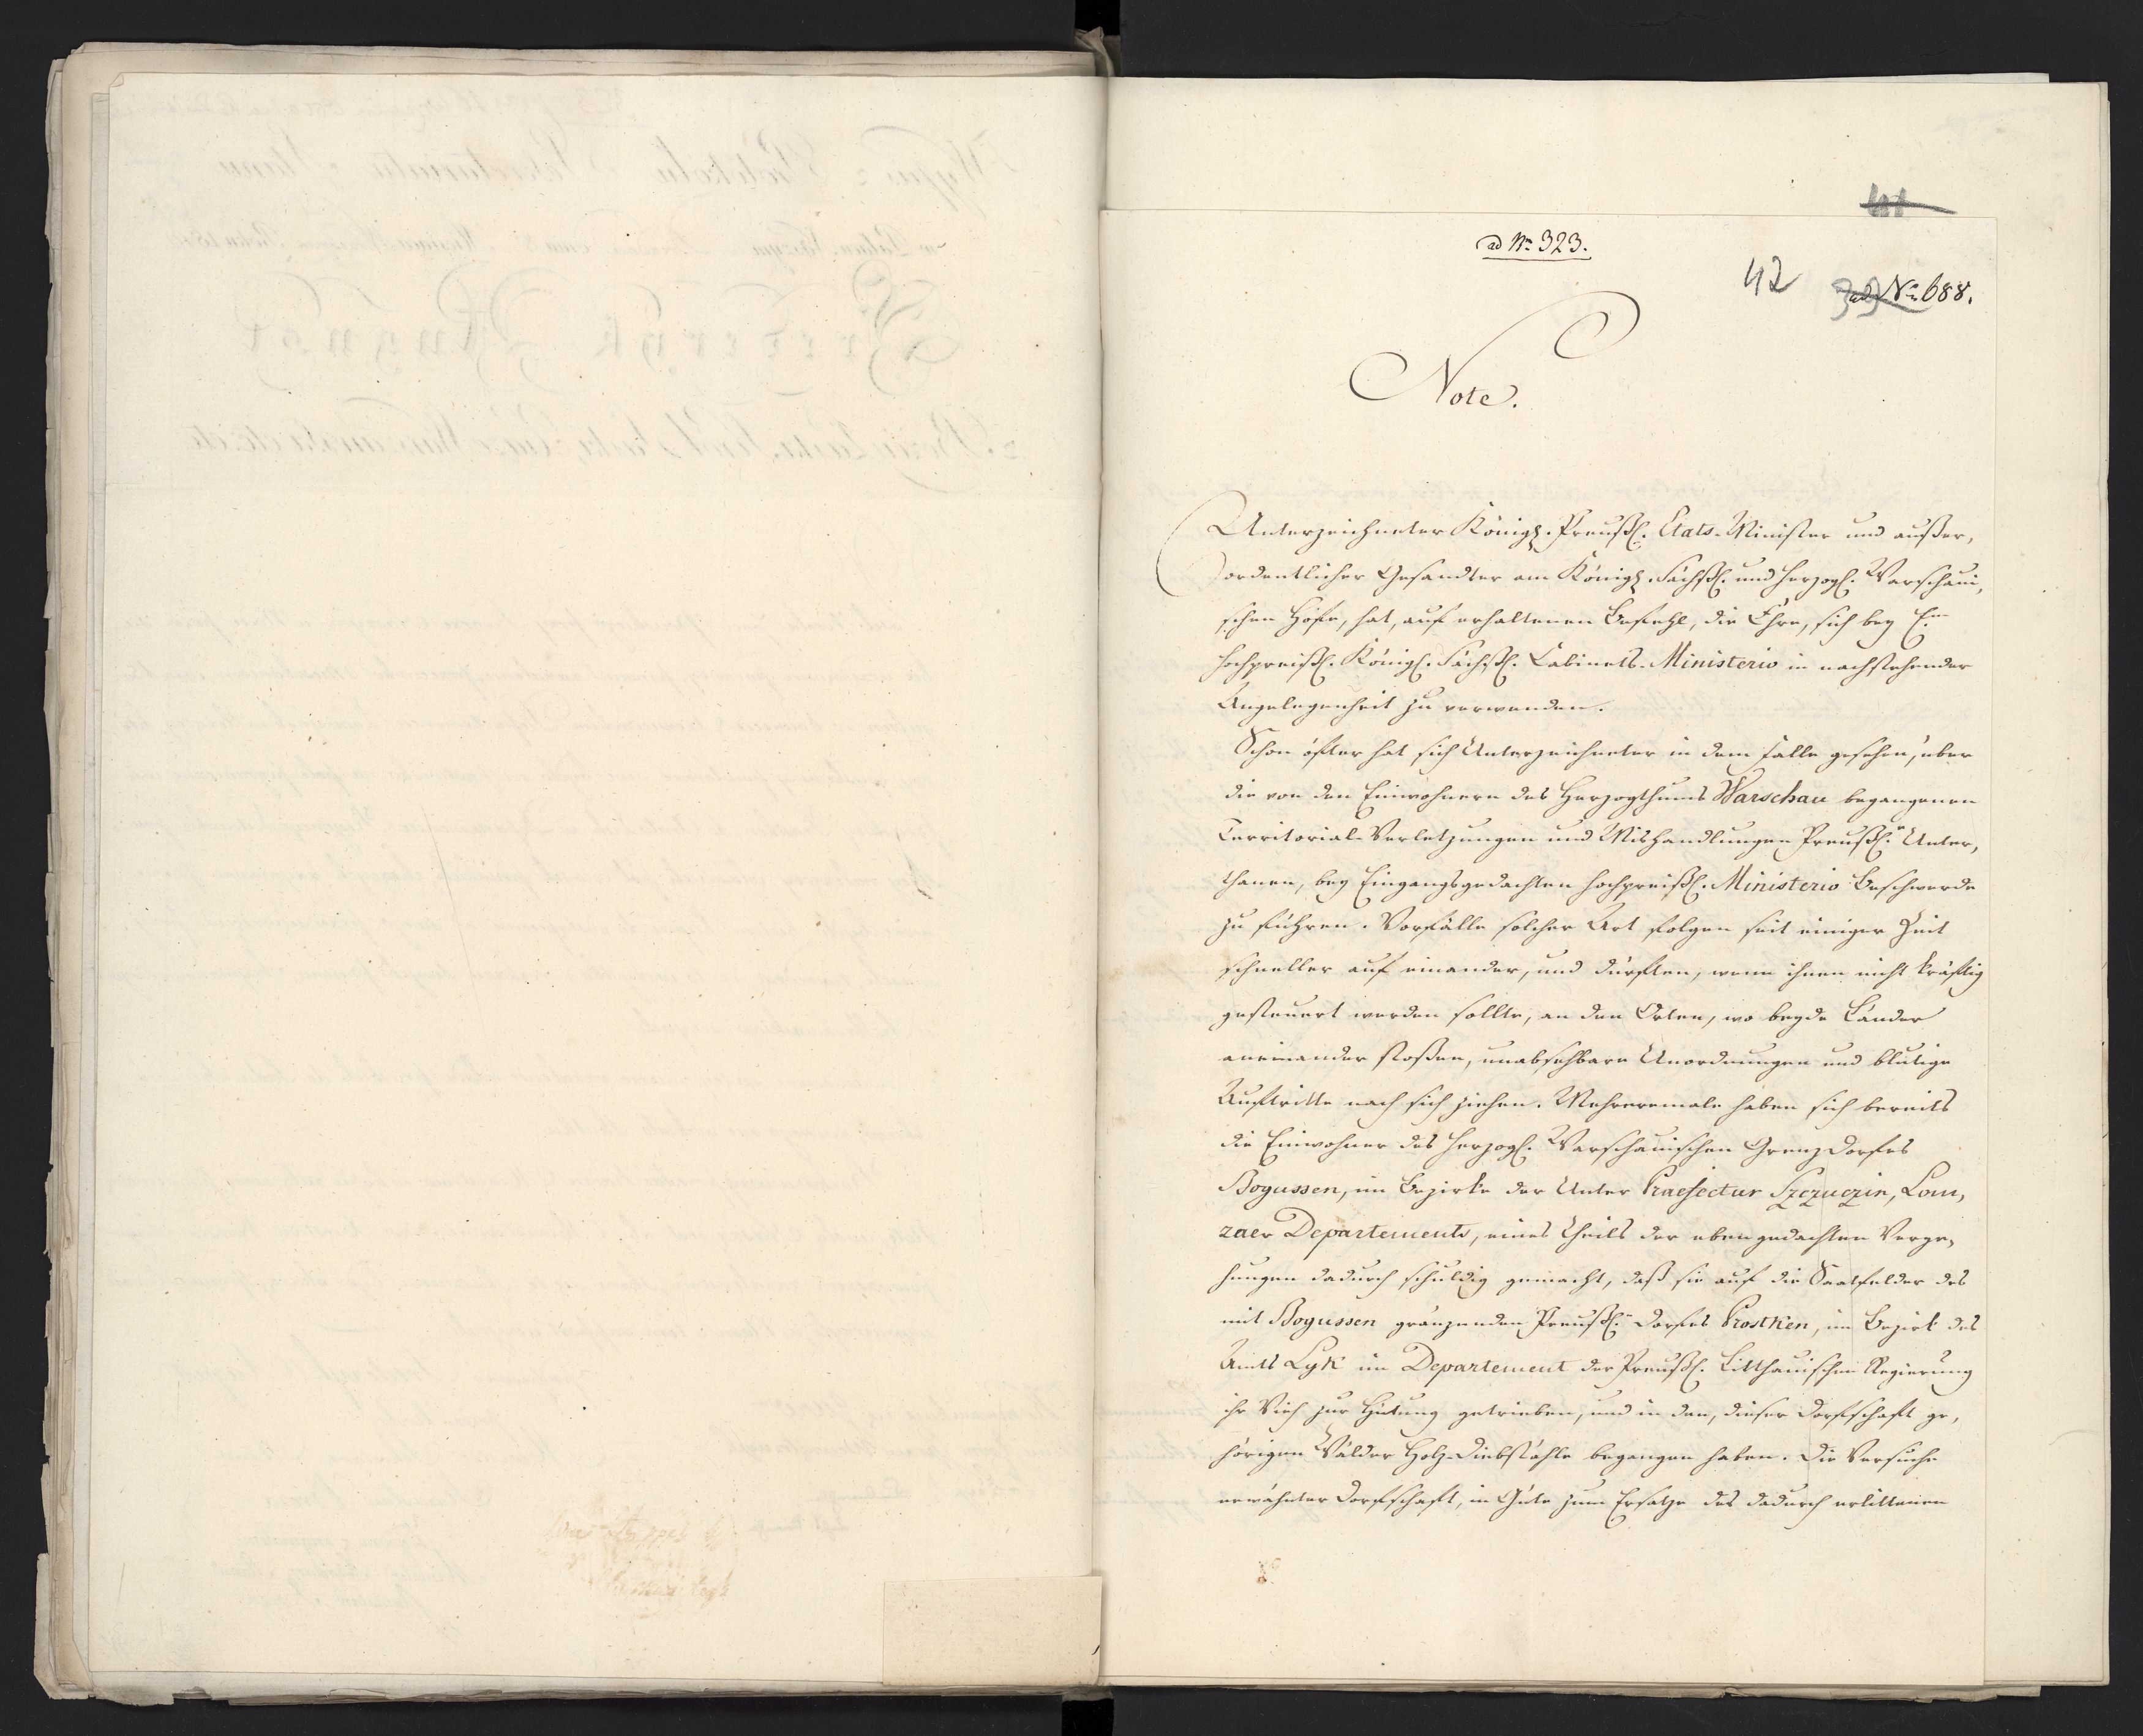 41
ad Nr. 323.
42
39
ad Nr. 688.
Note.
Unterzeichneter Königl. Preußl. Etats-Minister und außer,
ordentlicher Gesandter am Königl. Sächßl. und Herzogl. Warschaui,
schen Hofe, hat, auf erhaltenen Befehl, die Ehre, sich bey Em
hochpreißl. Königl. Sächßl. Cabinets-Ministerio in nachstehender
Angelegenheit zu verwenden.
Schon öfter hat sich Unterzeichneter in dem Falle gesehen, über
die von den Einwohnern des Herzogthums Warschau begangenen
Territorial-Verletzungen und Mishandlungen Preußl.r Unter,
thanen, bey Eingangsgedachten hochpreißl. Ministerio Beschwerde
zu führen. Vorfälle solcher Art folgen seit einiger Zeit
schneller auf einander, und dürften, wenn ihnen nicht kräftig
gesteuert werden sollte, an den Orten, wo beyde Länder
aneinander stoßen, unabsehbare Unordnungen und blutige
Auftritte nach sich ziehen. Mehreremale haben sich bereits
die Einwohner des Herzogl. Warschauischen Grenzdorfes
Bogussen, im Bezirke der Unter Praefectur Szczuczin, Lom,
zaer Departements, eines Theils der eben gedachten Verge,
hungen dadurch schuldig gemacht, daß sie auf die Saatfelder des
mit Bogussen gränzenden Preußl.n Dorfes Prostken, im Bezirk des
Amts Lyk im Departement der Preußl. Litthauischen Regierung
ihr Vieh zur Hütung getrieben, und in den, dieser Dorfschaft ge,
hörigen Wälder Holz-Diebstähle begangen haben. Die Versuche
erwähnter Dorfschaft, in Güte zum Ersatze des dadurch erlittenen